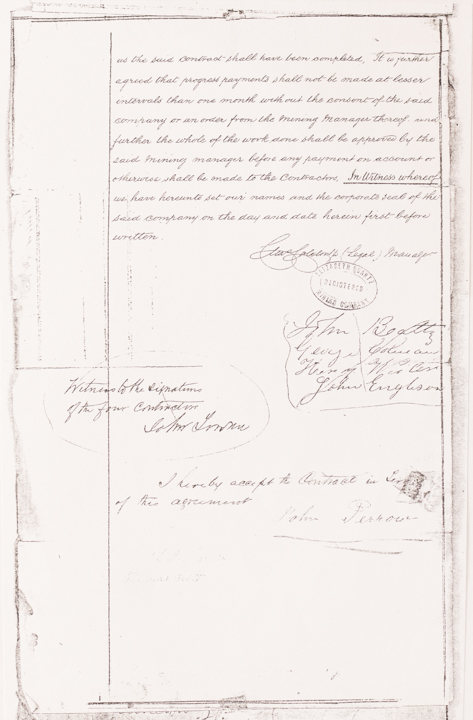 as the said contract shall have been completed, It is further
agreed that progress payments shall not be made at lesser
intervals than one month without the consent of the said
company or an order from the Mining Manager thereof and
further the whole of the work done shall be approved by the
said Mining Manager before any payment on account or
otherwise shall be made to the Contractors. In Witness whereof
we, have hereunto set our names and the corporate seal of the
said company on the day and date herein first before
written.
(Legal) Manager
ELIZABETH QUARTZ
REGISTERED
MINING COMPANY
John Beatty
George Coleman
Henry
John English
Witness to the signatures
of the four Contractors
John Cowan
I hereby accept the Contract in
of this agreement
John Perrow